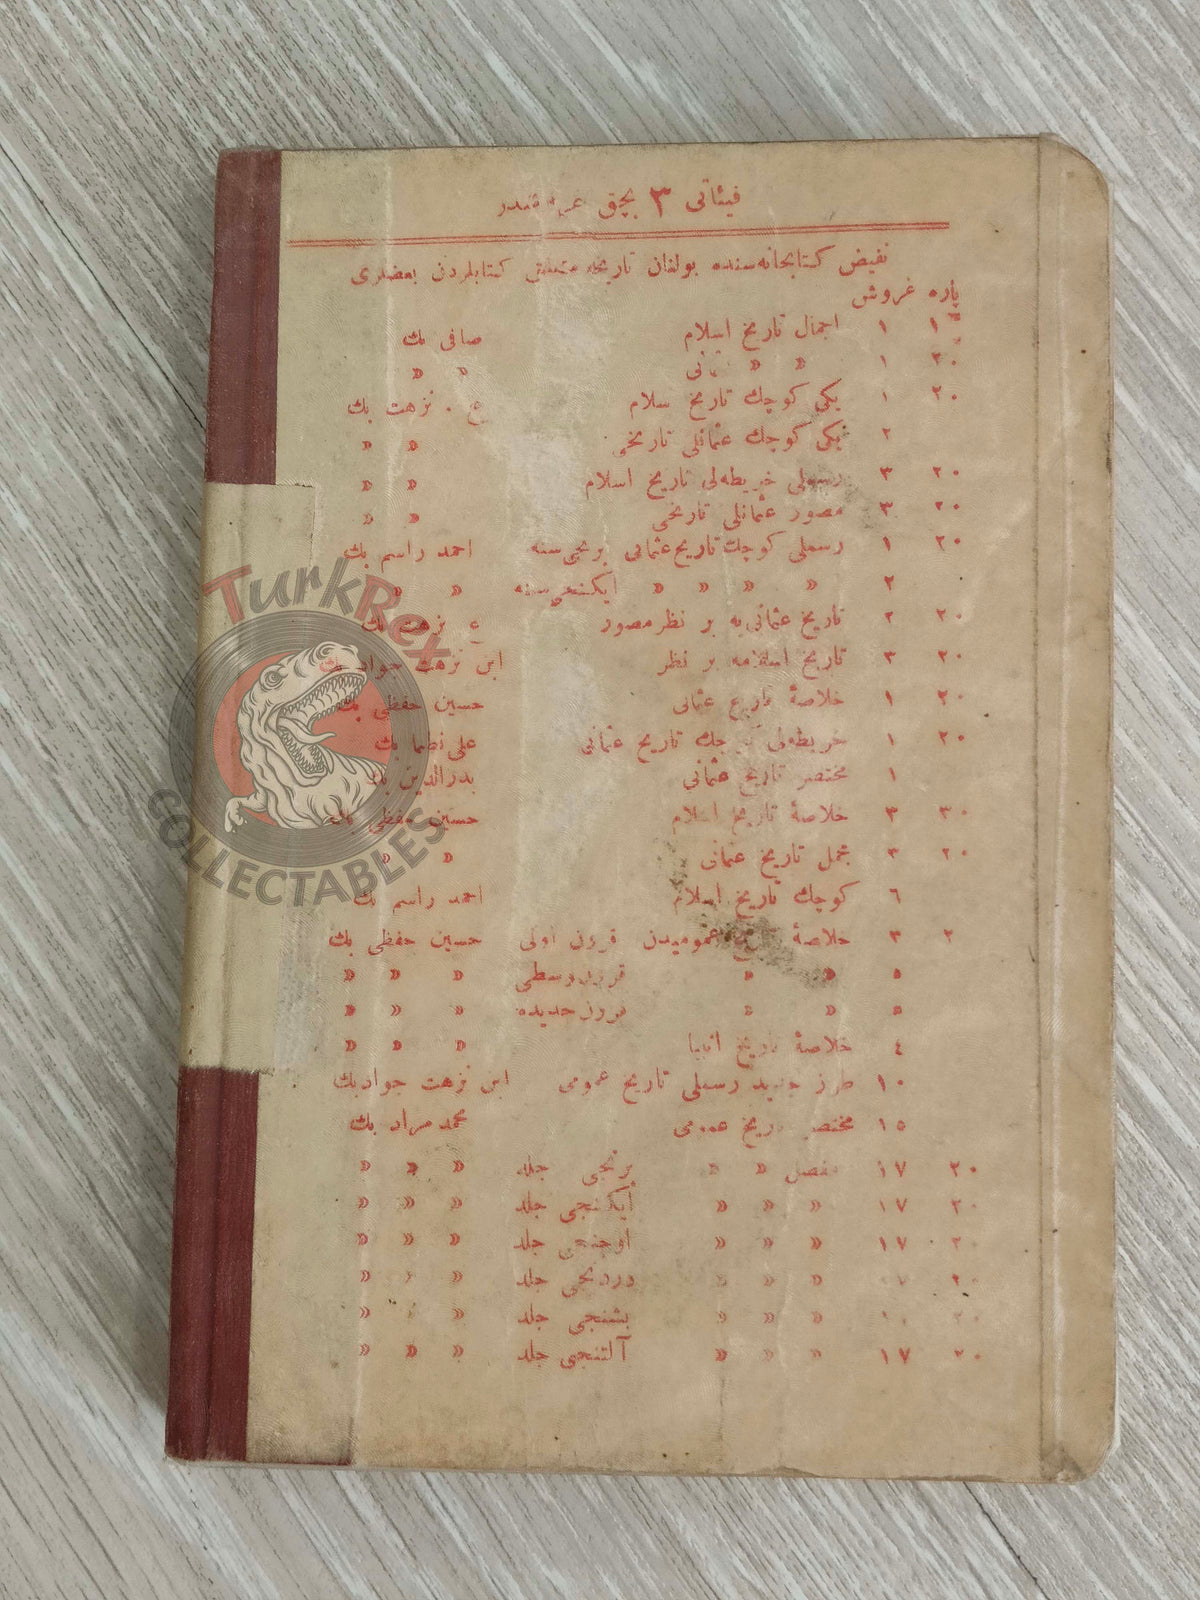 فیئاتی ٣ بچق غروشدر
كتابخانه‌سنده بولنان تاریخه متعلق كتابلردن بعضلری
پاره غروش
١٠ ١ اجمال تاریخ اسلام صافی بك
٣٠ ١ » » » »
٢٠ ١ یكی كوچك تاریخ اسلام ع . نزهت بك
٢ یكی كوچك عثمانلی تاریخی » »
٢٠ ٣ رسملی خریطه‌لی تاریخ اسلام » »
٢٠ ٣ مصور عثمانلی تاریخی » »
٢٠ ١ رسملی كوچك تاریخ عثمانی برنجی سنه احمد راسم بك
٢ » » » » ایكنجی سنه » »
٢٠ ٢ تاریخ عثمانی‌یه بر نظر مصور ع نزهت بك
٢٠ ٣ تاریخ اسلامه بر نظر ابن نزهت جواد بك
٢٠ ١ خلاصهٔ تاریخ عثمانی حسین حفظی بك
٢٠ ١ خریطه‌لی كوچك تاریخ عثمانی علی نظما بك
١ مختصر تاریخ عثمانی بدرالدین بك
٣٠ ٣ خلاصهٔ تاریخ اسلام حسین حفظی بك
٢٠ ٣ مجمل تاریخ عثمانی » »
٦ كوچك تاریخ اسلام احمد راسم بك
٢ ٣ خلاصهٔ تاریخ عمومیدن قرون اولی حسین حفظی بك
٥ » » قرون وسطی » » »
٥ » » قرون جدیده » » »
٤ خلاصهٔ تاریخ انبیا » » »
١٠ طرز جدید رسملی تاریخ عمومی ابن نزهت جواد بك
١٥ مختصر تاریخ عمومی محمد مراد بك
٢٠ ١٧ مفصل » » برنجی جلد » » »
٢٠ ١٧ » » » ایكنجی جلد » » »
٢٠ ١٧ » » » اوچنجی جلد » » »
٢٠ » » » دردنجی جلد » » »
٢٠ » » » بشنجی جلد » » »
٢٠ ١٧ » » » آلتنجی جلد » » »
TurkRex
COLLECTABLES